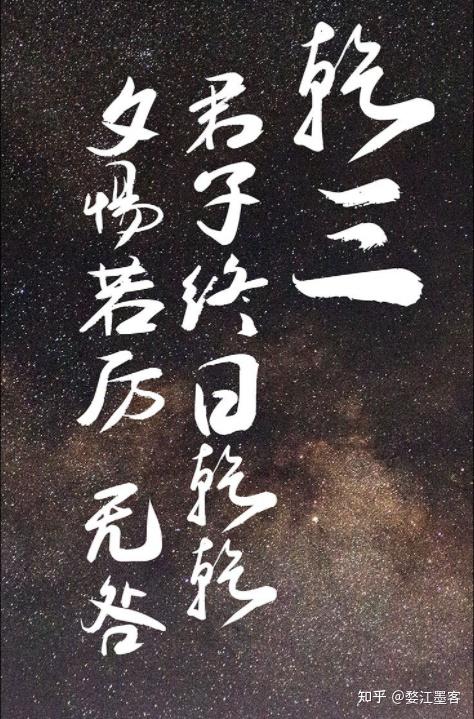 乾三
君子终日乾乾
夕惕若厉 无咎
知乎 @婺江墨客